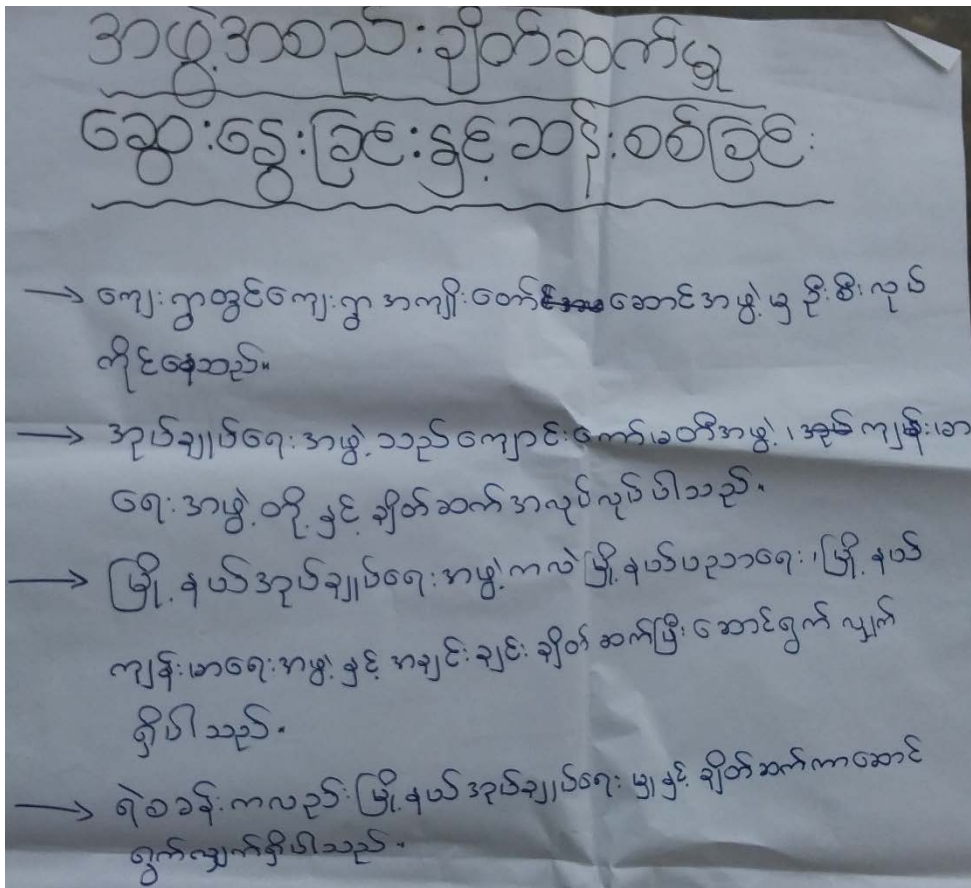 အဖွဲ့အစည်းချိတ်ဆက်မှု
ဆွေးနွေးခြင်းနှင့်ဆန်းစစ်ခြင်း
→ ကျေးရွာတွင်ကျေးရွာ အကျိုးတော် ဆောင်အဖွဲ့မှ ဦးစီးလုပ်
ကိုင်နေသည်။
→ အုပ်ချုပ်ရေးအဖွဲ့သည်ကျောင်းကော်မတီအဖွဲ့၊ ကျန်းမာ
ရေးအဖွဲ့တို့နှင့် ချိတ်ဆက်အလုပ်လုပ်ပါသည်။
→ မြို့နယ်အုပ်ချုပ်ရေးအဖွဲ့ကလဲမြို့နယ်ပညာရေး၊မြို့နယ်
ကျန်းမာရေးအဖွဲ့နှင့် အချင်းချင်းချိတ်ဆက်ပြီးဆောင်ရွက်လျှက်
ရှိပါသည်။
→ ရဲစခန်းကလည်းမြို့နယ်အုပ်ချုပ်ရေးမှုနှင့် ချိတ်ဆက်ကာဆောင်
ရွက်လျှက်ရှိပါသည်။